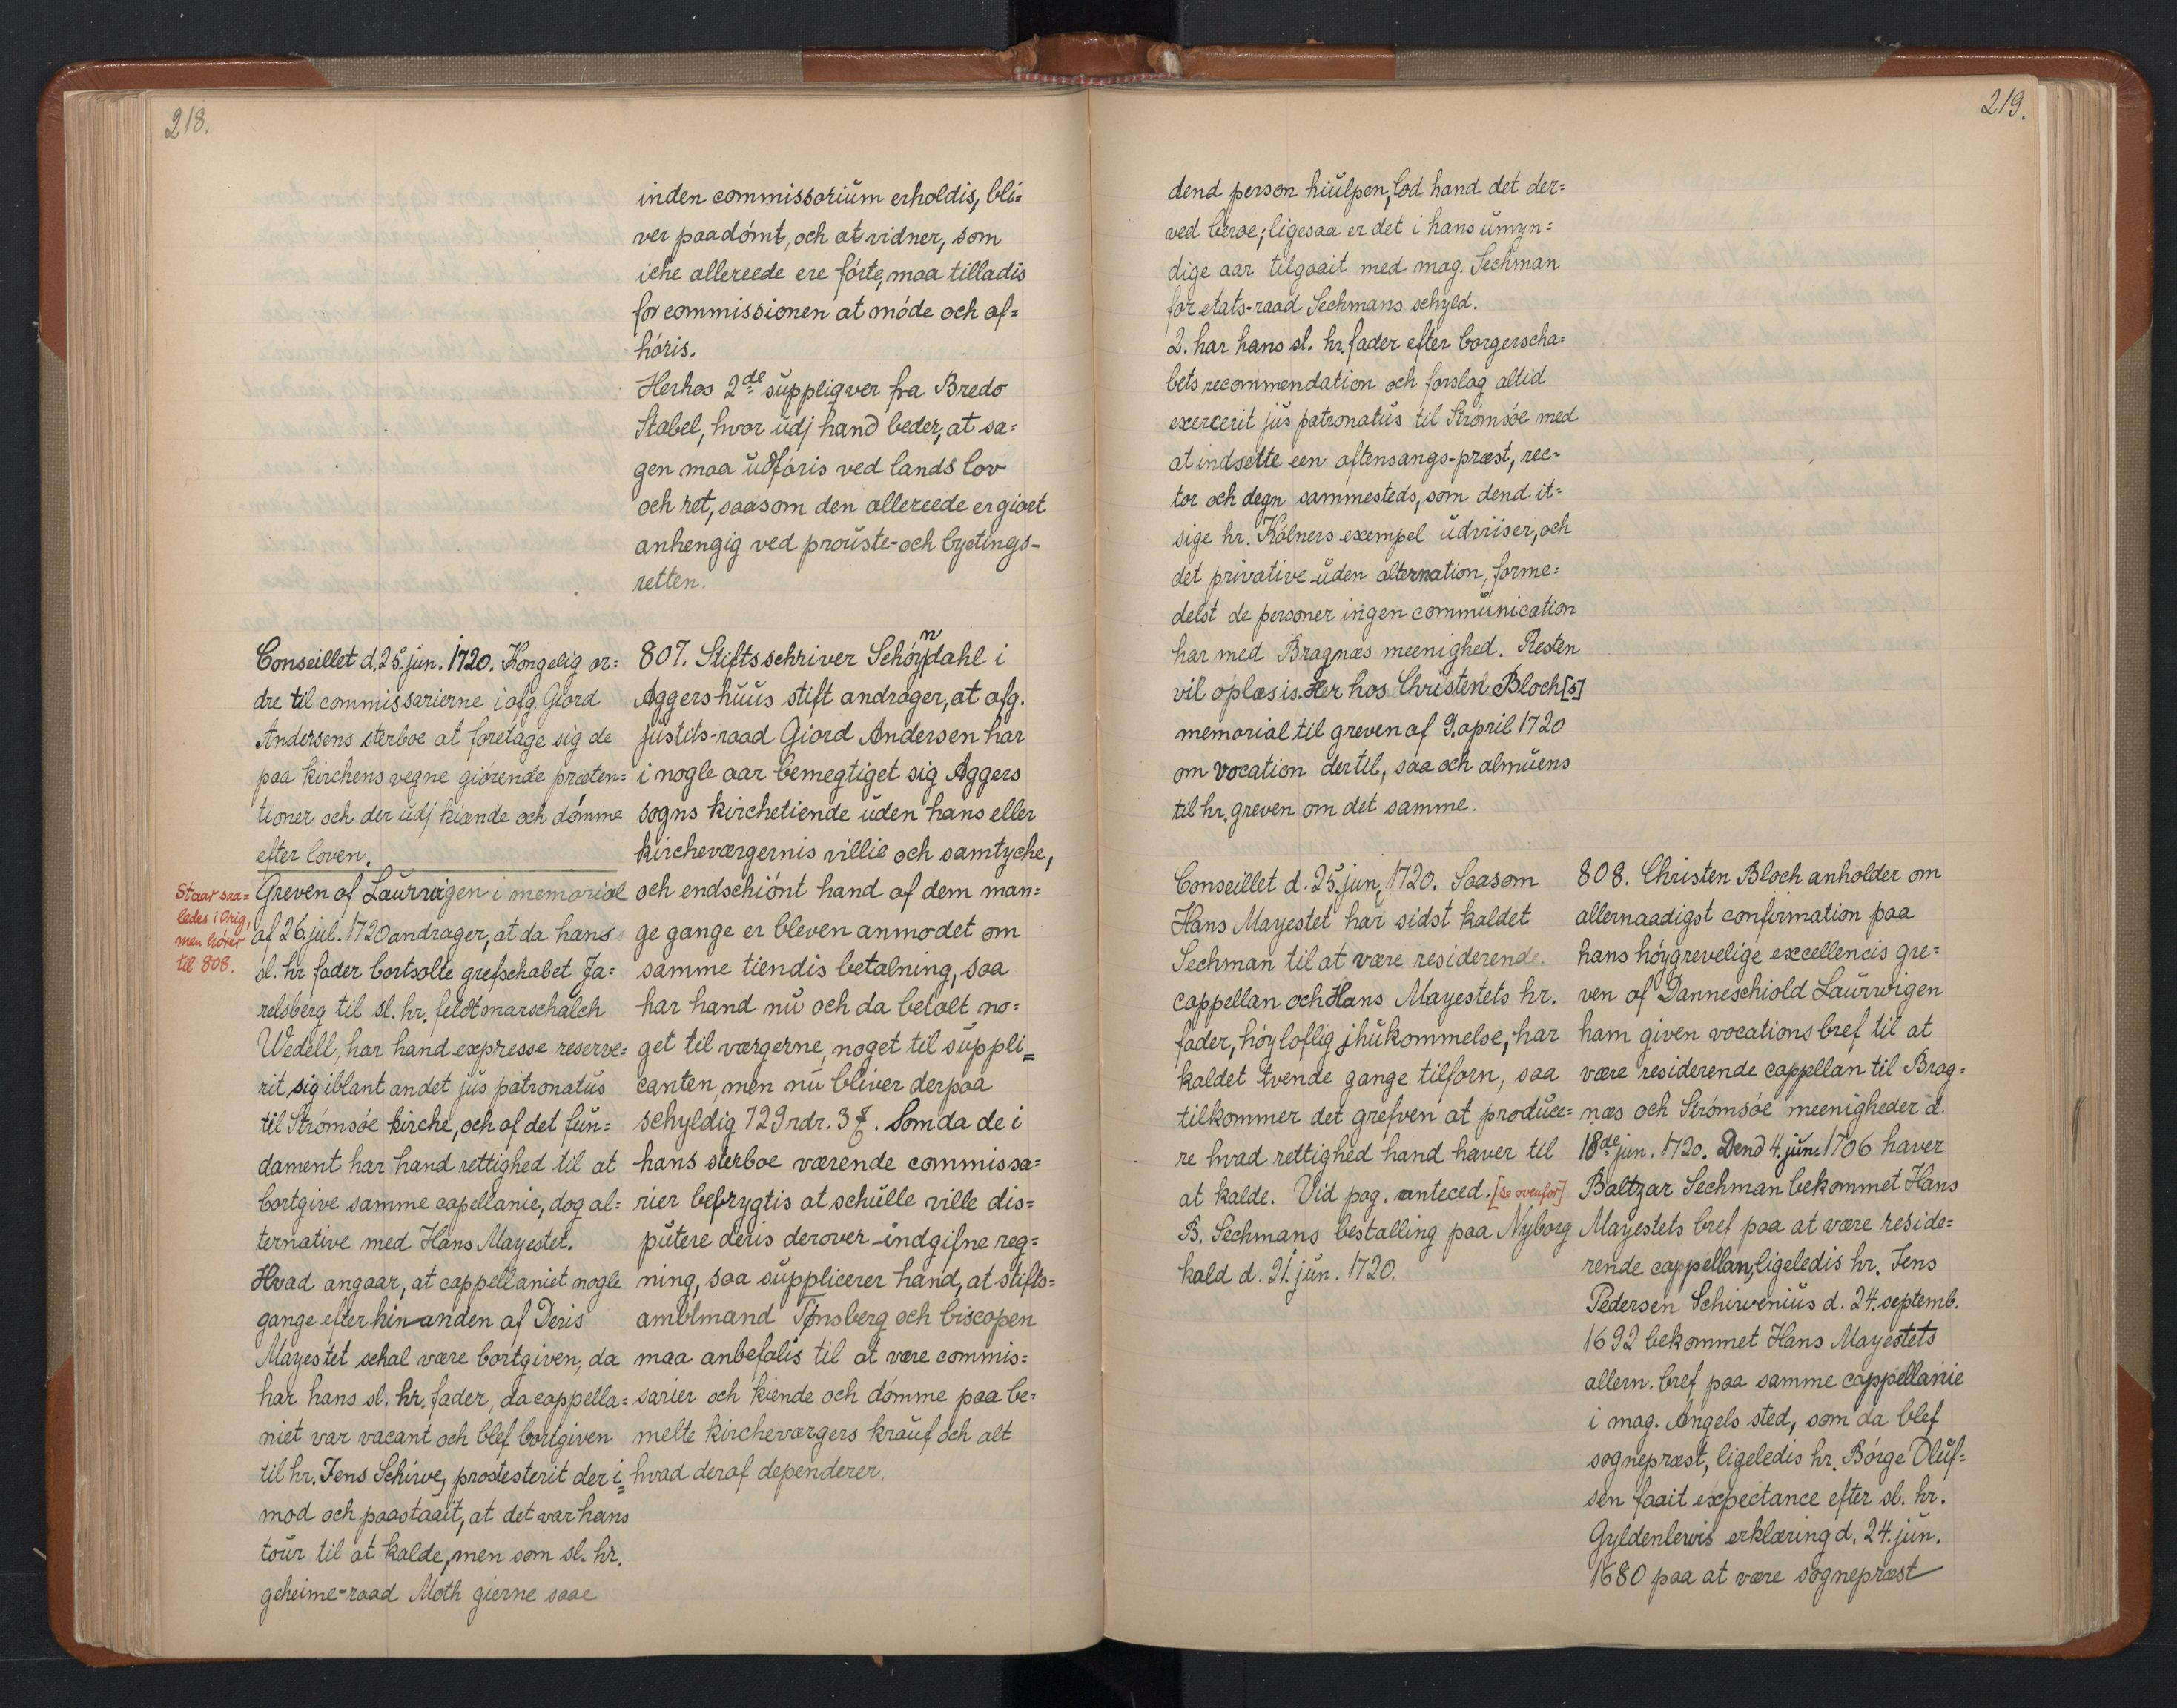 218.
inden commissorium erholdis, bli=
ver paadómt, och at vidner, som
iche allereede ere fórte, maa tilladis
for commissionen at móde och af=
hóris.
Herhos 2de suppliqver fra Bredo
Stabel, hvor udj hand beder, at sa=
gen maa udfóris ved lands lov
och ret, saasom den allereede er giort
anhengig ved prouste- och byetings-
retten.
Conseillet d. 25. jun. 1720. Kongelig or=
dre til commissarierne i afg. Giord
Andersens sterboe at foretage sig de
paa kirchens vegne giórende præten=
tioner och der udj kiænde och dómme
efter loven.
Staar saa=
ledes i Orig,
men hører
til 808.
Greven af Laurwigen i memorial
af 26. jul. 1720 andrager, at da hans
sl. hr fader bortsolte grefschabet Ja=
relsberg til sl. hr. feldtmarschalch
Wedell, har hand expresse reserve=
rit sig iblant andet jus patronatus
til Strómsóe kirche, och af det fun=
dament har hand rettighed til at
bortgive samme capellanie, dog al=
ternative med Hans Mayestet.
Hvad angaar, at cappellaniet nogle
gange efter hin anden af Deris
Mayestet schal være bortgiven, da
har hans sl. hr. fader, da cappella=
niet var vacant och blef bortgiven
til hr. Jens Schirve, prostesterit der i=
mod och paastaait, at det var hans
tour til at kalde, men som sl. hr.
geheime-raad Moth gierne saae
807. Stiftsschriver Schóyndahl i
Aggershuus stift andrager, at afg.
justits-raad Giord Andersen har
i nogle aar bemegtiget sig Aggers
sogns kirchetiende uden hans eller
kircheværgernis villie och samtyche,
och endschiónt hand af dem man=
ge gange er bleven anmodet om
samme tiendis betalning, saa
har hand nu och da betalt no=
get til værgerne, noget til suppli=
canten, men nu bliver derpaa
schyldig 729 rdr. 3 ꝑ. Som da de i
hans sterboe værende commissa=
rier befrygtis at schulle ville dis=
putere deris derover indgifne reg=
ning, saa supplicerer hand, at stifts=
ambtmand Tønsberg och biscopen
maa anbefalis til at være commis=
sarier och kiende och dómme paa be=
melte kircheværgers krauf och alt
hvad deraf dependerer.
219.
dend person hiulpen, lod hand det der=
ved beroe; ligesaa er det i hans umyn=
dige aar tilgaait med mag. Sechman
for etats-raad Sechmans schyld.
2. har hans sl. hr. fader efter borgerscha=
bets recommendation och forslag altid
exercerit jus patronatus til Strómsóe med
at indsette een aftensangs-præst, rec=
tor och degn sammesteds, som dend it=
sige hr. Kólners exempel udviiser, och
det privative uden alternation, forme=
delst de personer ingen communication
har med Bragnæs meenighed. Resten
vil oplæsis. Her hos Christen Bloch[s]
memorial til greven af 9. april 1720
om vocation dertil, saa och almuens
til hr. greven om det samme.
Conseillet d. 25. jun. 1720. Saasom
Hans Mayestet har sidst kaldet
Sechman til at være residerende.
cappellan och Hans Mayestets hr.
fader, hóyloflig jhukommelse, har
kaldet tvende gange tilforn, saa
tilkommer det grefven at produce=
re hvad rettighed hand haver til
at kalde. Vid pag. anteced. [se ovenfor]
B. Sechmans bestalling paa Nyborg
kald d. 21. jun. 1720.
808. Christen Bloch anholder om
allernaadigst confirmation paa
hans hóygrevelige excellencis gre=
ven af Danneschiold Laurwigen
ham given vocations bref til at
være residerende cappellan til Brag=
næs och Strómsóe meenigheder d.
18de jun. 1720. Dend 4. jun. 1706 haver
Baltzar Sechman bekommet Hans
Mayestets bref paa at være reside=
rende cappellan, ligeledis hr. Jens
Pedersen Schirvenius d. 24. septemb.
1692 bekommet Hans Mayestets
allern. bref paa samme cappellanie
i mag. Angels sted, som da blef
sognepræst, ligeledis hr. Bórge Oluf=
sen faait expectance efter sl. hr.
Gyldenlewis erklæring d. 24. jun.
1680 paa at være sognepræst